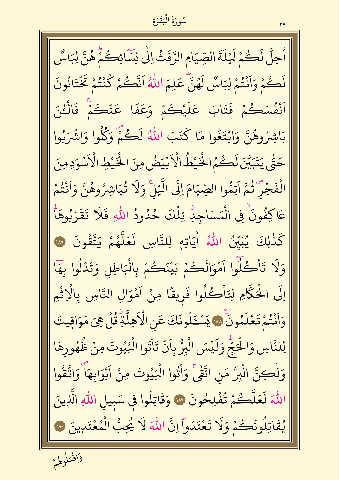 ٢٨
سُورَةُ الْبَقَرَةِ
اُحِلَّ لَكُمْ لَيْلَةَ الصِّيَامِ الرَّفَثُ اِلٰى نِسَائِكُمْ هُنَّ لِبَاسٌ
لَكُمْ وَاَنْتُمْ لِبَاسٌ لَهُنَّ عَلِمَ اللّٰهُ اَنَّكُمْ كُنْتُمْ تَخْتَانُونَ
اَنْفُسَكُمْ فَتَابَ عَلَيْكُمْ وَعَفَا عَنْكُمْ فَالْـٰٔنَ
بَاشِرُوهُنَّ وَابْتَغُوا مَا كَتَبَ اللّٰهُ لَكُمْ وَكُلُوا وَاشْرَبُوا
حَتّٰى يَتَبَيَّنَ لَكُمُ الْخَيْطُ الْاَبْيَضُ مِنَ الْخَيْطِ الْاَسْوَدِ مِنَ
الْفَجْرِ ثُمَّ اَتِمُّوا الصِّيَامَ اِلَى الَّيْلِ وَلَا تُبَاشِرُوهُنَّ وَاَنْتُمْ
عَاكِفُونَ فِى الْمَسَاجِدِ تِلْكَ حُدُودُ اللّٰهِ فَلَا تَقْرَبُوهَا
كَذٰلِكَ يُبَيِّنُ اللّٰهُ اٰيَاتِهِ لِلنَّاسِ لَعَلَّهُمْ يَتَّقُونَ
وَلَا تَأْكُلُوا اَمْوَالَكُمْ بَيْنَكُمْ بِالْبَاطِلِ وَتُدْلُوا بِهَا
اِلَى الْحُكَّامِ لِتَأْكُلُوا فَرِيقًا مِنْ اَمْوَالِ النَّاسِ بِالْاِثْمِ
وَاَنْتُمْ تَعْلَمُونَ يَسْـَٔلُونَكَ عَنِ الْاَهِلَّةِ قُلْ هِىَ مَوَاقِيتُ
لِلنَّاسِ وَالْحَجِّ وَلَيْسَ الْبِرُّ بِاَنْ تَأْتُوا الْبُيُوتَ مِنْ ظُهُورِهَا
وَلٰكِنَّ الْبِرَّ مَنِ اتَّقٰى وَأْتُوا الْبُيُوتَ مِنْ اَبْوَابِهَا وَاتَّقُوا
اللّٰهَ لَعَلَّكُمْ تُفْلِحُونَ وَقَاتِلُوا فِى سَبِيلِ اللّٰهِ الَّذِينَ
يُقَاتِلُونَكُمْ وَلَا تَعْتَدُوا اِنَّ اللّٰهَ لَا يُحِبُّ الْمُعْتَدِينَ
وَاقْتُلُوهُمْ